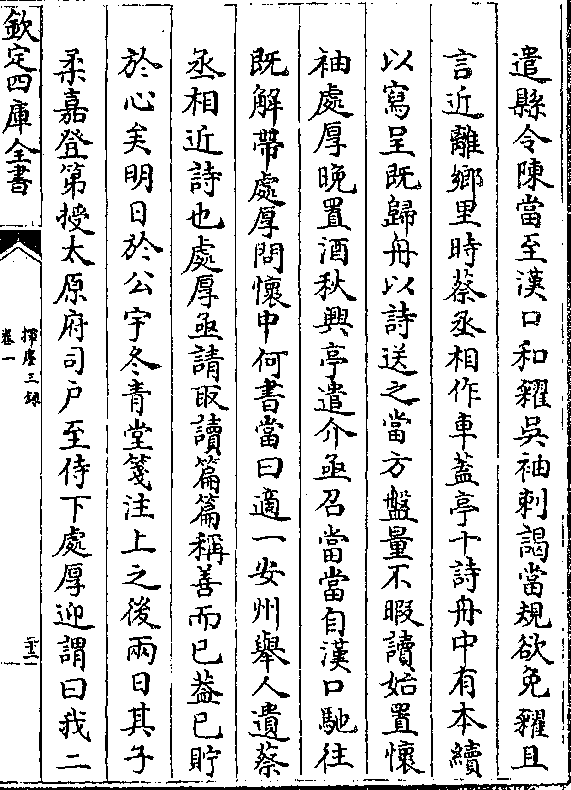 遣縣令陳當至漢口和糴吳袖刺謁當規欲免糴且
言近離鄉里時蔡丞相作車蓋亭十詩舟中有本續
以寫呈既歸舟以詩送之當方盤量不暇讀姑置懷
袖處厚晚置酒秋興亭遣介亟召當當自漢口馳往
既解帶處厚問懷中何書當曰適一安州舉人遺蔡
丞相近詩也處厚亟請取讀篇篇稱善而已葢已貯
於心矣明日於公宇冬青堂箋注上之後兩日其子
柔嘉登第授太原府司戶至侍下處厚迎謂曰我二
欽定四庫全書
揮麈三錄
卷一